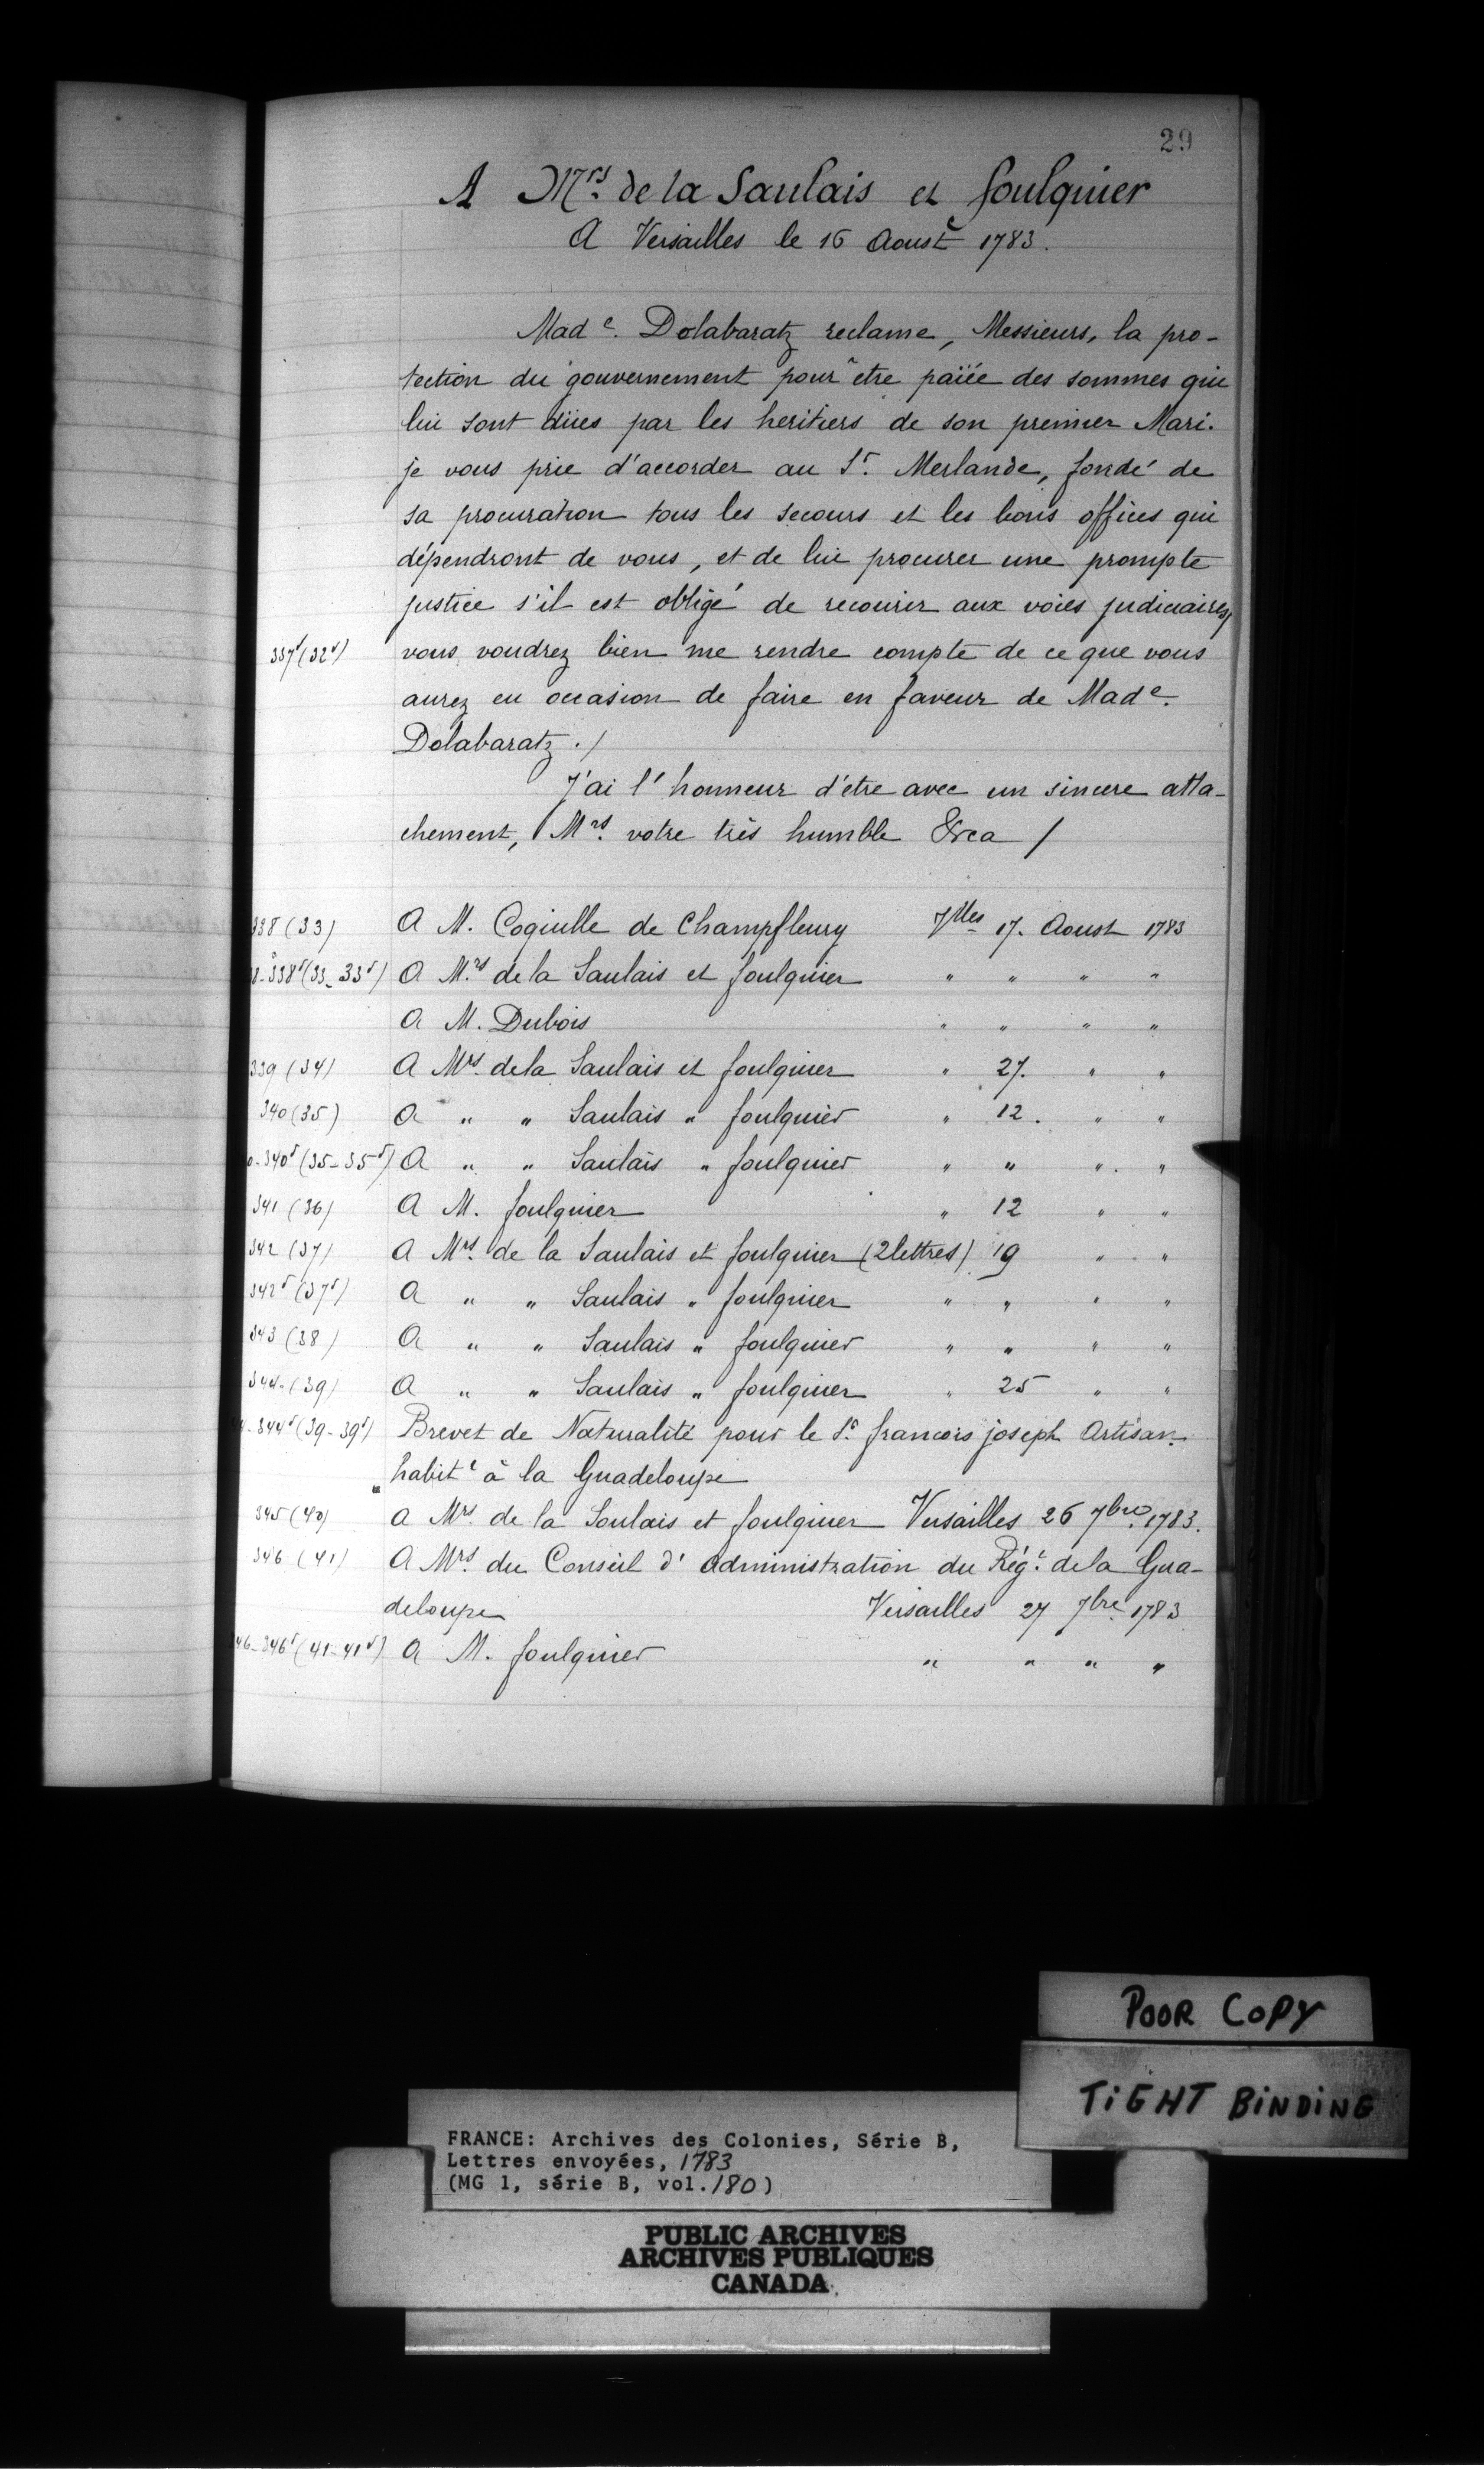 29
A Mrs. de la Saulais et foulquier
A Versailles le 16 Aoust 1783.
Made. Dolabaratz reclame, Messieurs, la pro-
tection du gouvernement pour être païée des sommes qui
lui sont dües par les heritiers de son premier Mari.
je vous prie d'accorder au Sr. Merlande, fondé de
sa procuration tous les secours et les bons offices qui
dépendront de vous, et de lui procurer une prompte
justice s'il est obligé de recourir aux voies judiciaires,
337v (32v) vous voudrez bien me rendre compte de ce que vous
aurez eu occasion de faire en faveur de Made.
Dolabaratz ./
J'ai l'honneur d'etre avec un sincere atta-
chement, Mrs. votre très humble &ca /
338 (33) A M. Coquille de Champfleury Vlles 17. Aoust 1783
8-338v (33-33v) A Mrs. de la Saulais et foulquier " " " "
A M. Dubois " " " "
339 (34) A Mrs. de la Saulais et foulquier " 27. " "
340 (35) A " " Saulais " foulquier " 12. " "
0-340v (35-35v) A " " Saulais " foulquier " " " "
341 (36) A M. foulquier " 12 " "
342 (37) A Mrs. de la Saulais et foulquier (2 lettres) 19 " "
342v (37v) A " " Saulais " foulquier " " " "
343 (38) A " " Saulais " foulquier " " " "
344 (39) A " " Saulais " foulquier " 25 " "
4-344v (39-39v) Brevet de Naturalité pour le Sr. francois joseph Artisan
habitt à la Guadeloupe
345 (40) A Mrs. de la Soulais et foulquier Versailles 26 7bre. 1783.
346 (41) A Mrs. du Conseil d'administration du Régt. de la Gua-
deloupe Versailles 27 7bre. 1783
346-346v (41-41v) A M. foulquier " " " "
POOR COPY
TIGHT BINDING
FRANCE: Archives des Colonies, Série B,
Lettres envoyées, 1783
(MG 1, série B, vol. 180)
PUBLIC ARCHIVES
ARCHIVES PUBLIQUES
CANADA